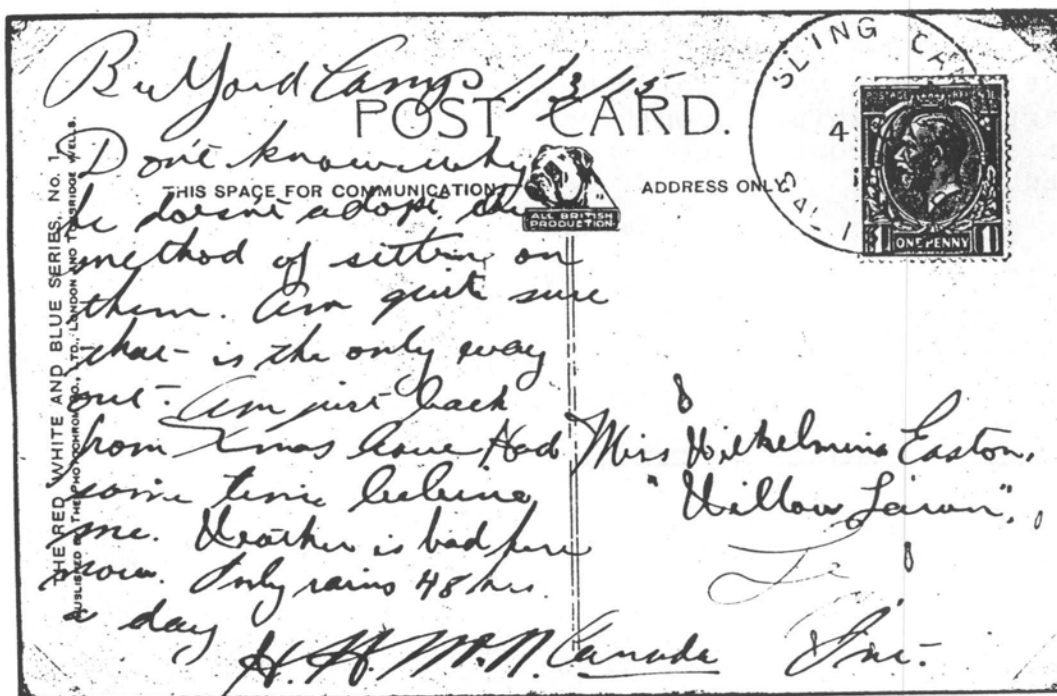 Bulford Camp 1/3/15
POST CARD.
THIS SPACE FOR COMMUNICATION
ADDRESS ONLY.
ALL BRITISH
PRODUCTION
SLING CA
4
SALI
ONE PENNY
1 1
THE RED, WHITE AND BLUE SERIES, NO. 1.
PUBLISHED BY THE PHOTOCHROM CO., LTD., LONDON AND TUNBRIDGE WELLS.
Don't know why
he doesn't adopt the
method of sittin on
them. Am quite sure
that is the only way
out. Am just back
from Xmas leave. Had
some time believe
me. Weather is bad here
now. Only rains 48 hrs.
a day
H. H. McN.
Miss Wilhelmina Easton,
"Willow
Canada Ont.